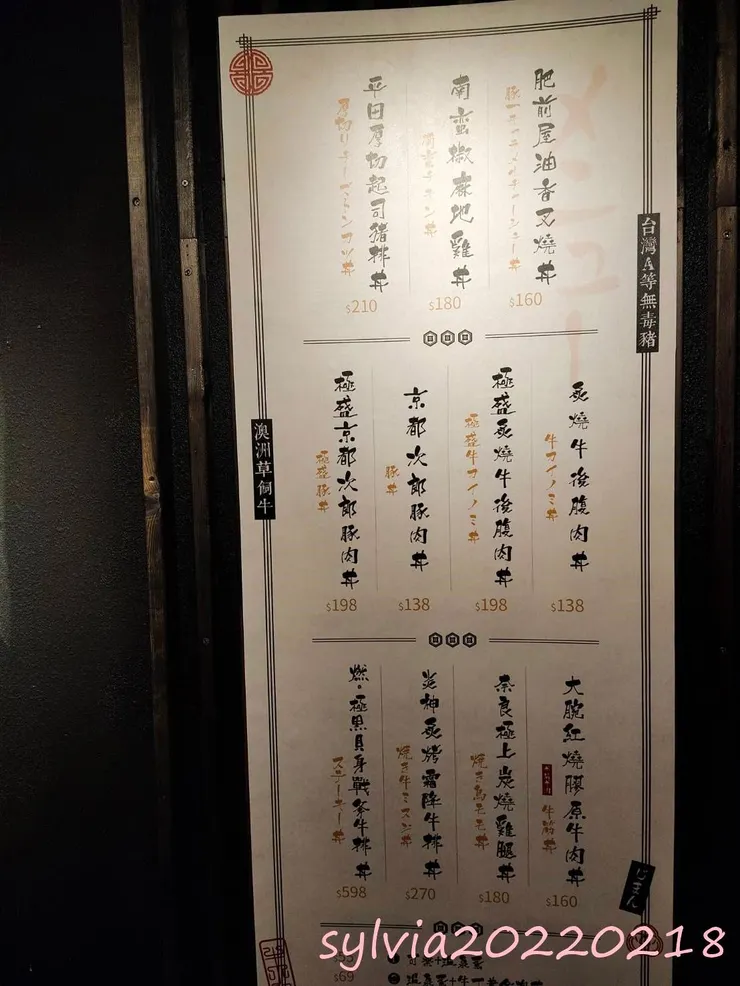 メニュー
台灣A等無毒豬
肥前屋油香叉燒丼
$160
南蠻椒麻地雞丼
$180
平田厚切起司豬排丼
$210
澳洲草飼牛
炙燒牛後腹肉丼
牛カイノミ丼
$138
極盛炙燒牛後腹肉丼
極盛牛カイノミ丼
$198
京都次郎豚肉丼
豚丼
$138
極盛京都次郎豚肉丼
極盛豚丼
$198
大腕紅燒膠原牛肉丼
牛筋丼
$160
奈良極上炭燒雞腿丼
焼き鳥モモ丼
$180
炎神炙烤霜降牛排丼
焼き牛ミスジ丼
$270
燃・極黑貝身戰斧牛排丼
ステーキ丼
$598
じまん
$69
sylvia20220218